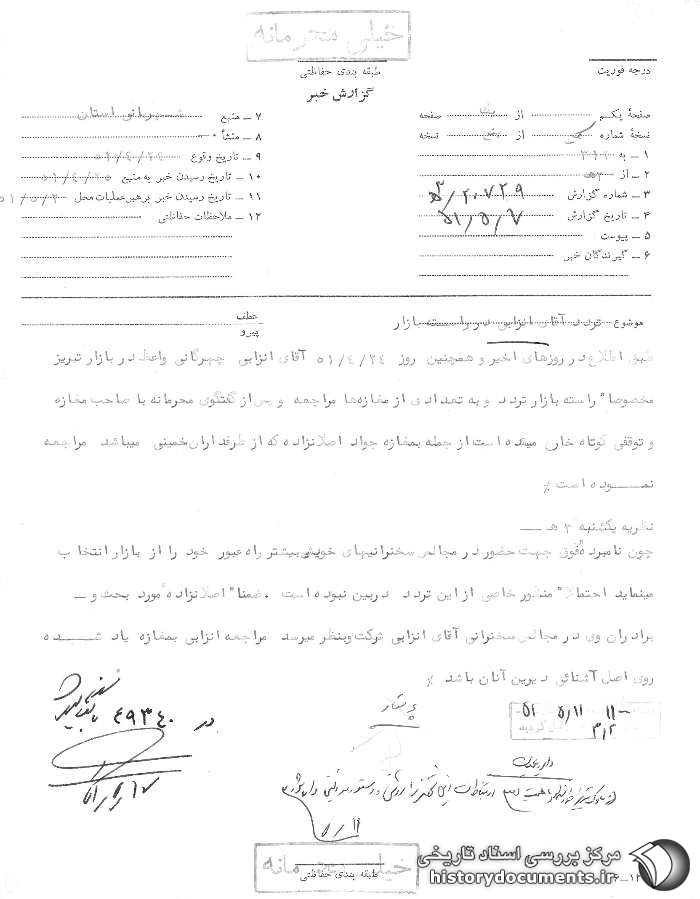 خیلی محرمانه
درجه فوریت
طبقه بندی حفاظتی
گزارش خبر
صفحهٔ یکم از یک صفحه
نسخهٔ شماره یک از نسخه
۱ ــ به ۳۱۲
۲ ــ از ۳هـ
۳ ــ شماره گزارش ۲۰۷۲۹/۳هـ
۴ ــ تاریخ گزارش ۵۱/۵/۷
۵ ــ پیوست
۶ ــ گیرندگان خبر
۷ ــ منبع شهربانی استان
۸ ــ منشأ
۹ ــ تاریخ وقوع ۵۱/۴/۲۴
۱۰ ــ تاریخ رسیدن خبر به منبع ۵۱/۴/۲۵
۱۱ ــ تاریخ رسیدن خبر برهبر عملیات محل ۵۱/۵/۲
۱۲ ــ ملاحظات حفاظتی
موضوع تردد آقای انزابی در راسته بازار
عطف
پیرو
طبق اطلاع در روزهای اخیر و همچنین روز ۵۱/۴/۲۴ آقای انزابی چهرگانی واعظ در بازار تبریز
مخصوصا" راسته بازار تردد و به تعدادی از مغازه‌ها مراجعه و پس از گفتگوی محرمانه با صاحب مغازه
و توقفی کوتاه خارج میشده است از جمله بمغازه جواد اصلانزاده که از طرفداران خمینی میباشد مراجعه
نمـــوده است ٪
نظریه یکشنبه ۳ هـ ــ
چون نامبرده فوق جهت حضور در مجالس سخنرانیهای خویش بیشتر راه عبور خود را از بازار انتخاب
مینماید احتمالا" منظور خاصی از این تردد دربین نبوده است . ضمنا" اصلانزاده مورد بحث و ــ
برادران وی در مجالس سخنرانی آقای انزابی شرکت وبنظر میرسد مراجعه انزابی بمغازه یاد شــده
روی اصل آشنائی دیرین آنان باشد ٪
در ۴۹۳۴۰
۵۱/۵/۱۱
۳۱۲
۵/۱۱
خیلی محرمانه
طبقه بندی حفاظتی
مرکز بررسی اسناد تاریخی
historydocuments.ir